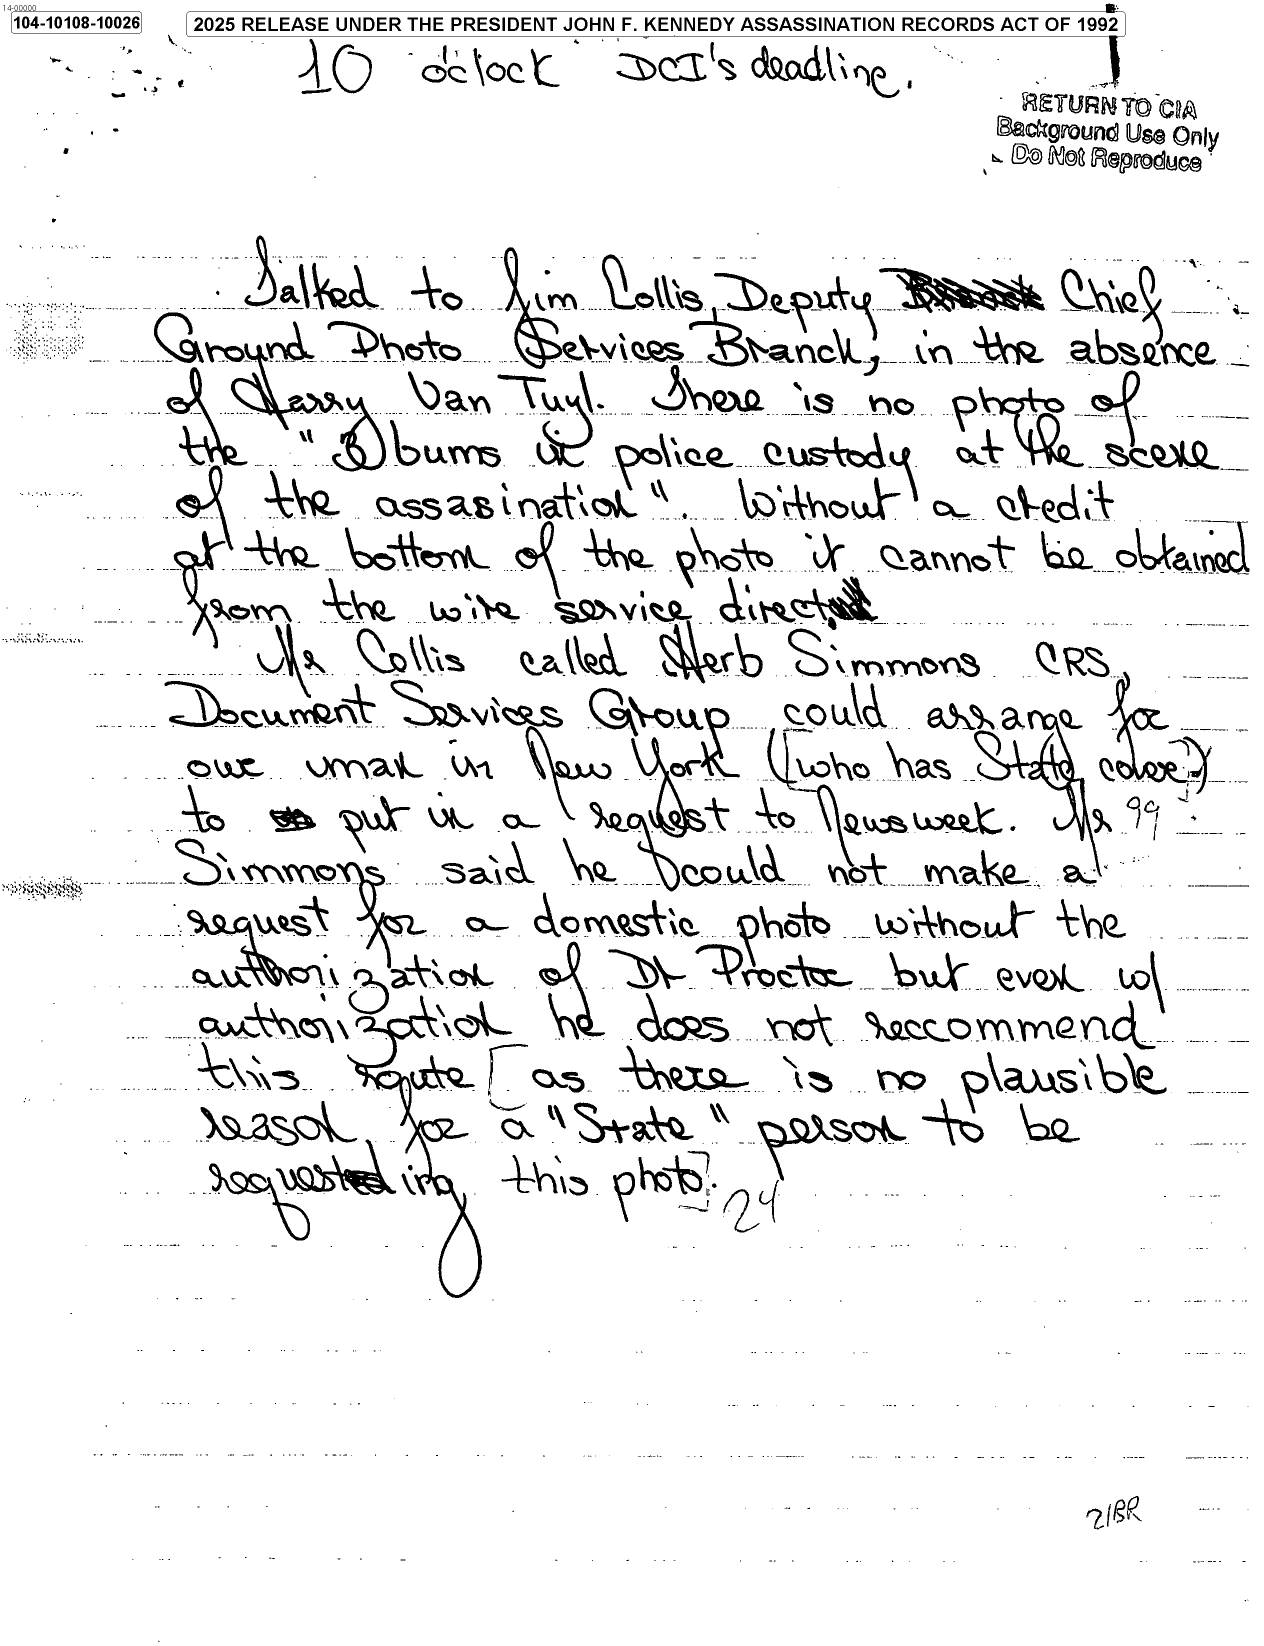 14-00000
104-10108-10026
2025 RELEASE UNDER THE PRESIDENT JOHN F. KENNEDY ASSASSINATION RECORDS ACT OF 1992
10 o'clock DCI's deadline.
RETURN TO CIA
Background Use Only
Do Not Reproduce
Talked to Jim Collis, Deputy Chief
Ground Photo Services Branch, in the absence
of Harry Van Tuyl. There is no photo of
the "3 bums in police custody at the scene
of the assasination". Without a credit
at the bottom of the photo it cannot be obtained
from the wire service direct
Mr Collis called Herb Simmons CRS,
Document Services Group could arrange for
our man in New York ([who has State cover?])
to put in a request to Newsweek. Mr 99
Simmons said he could not make a
request for a domestic photo without the
authorization of Dr Proctor but even w/
authorization he does not reccommend
this route [as there is no plausible
reason, for a "State" person to be
requesting this photo]. 24
21BR